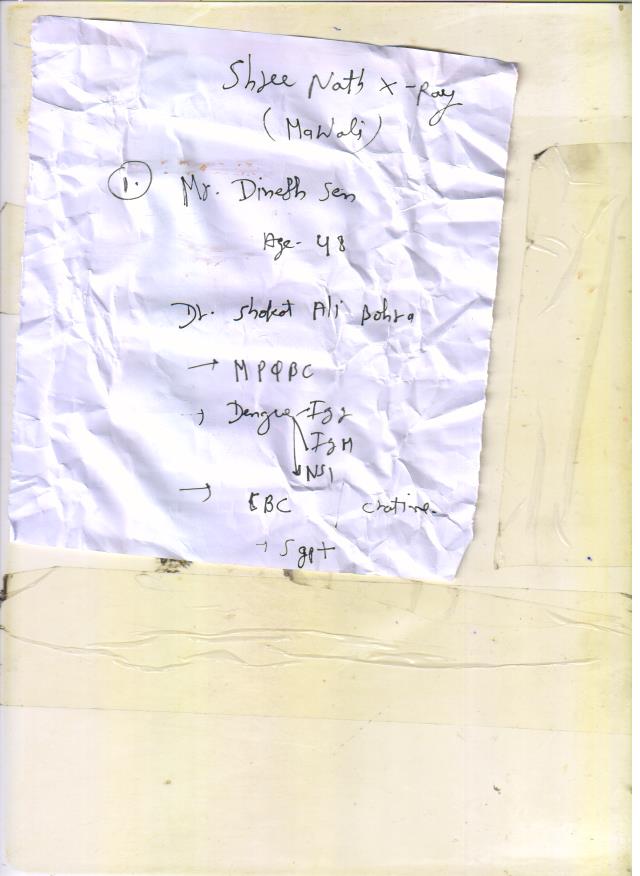 Shree Nath X-Ray
(Mawali)
1. Mr. Dinesh Sen
Age- 48
Dr. Shokat Ali Bohra
→ MPQBC
→ Dengue Igg
IgM
NS1
→ CBC cratine
→ Sgpt